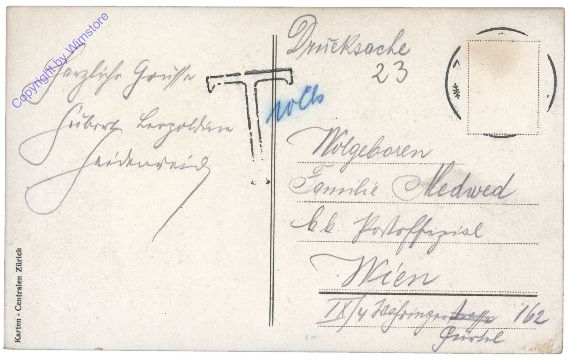 Copyright by Wimstore
Herzliche Grüsse
Hubert Leopoldine
Heidenreich
T
Drucksache
23
Wolgeboren
Familie Medwed
k.k. Postoffizial
Wien
IX/4 Währingerstrasse 162
Gürtel
Karten-Centralen Zürich